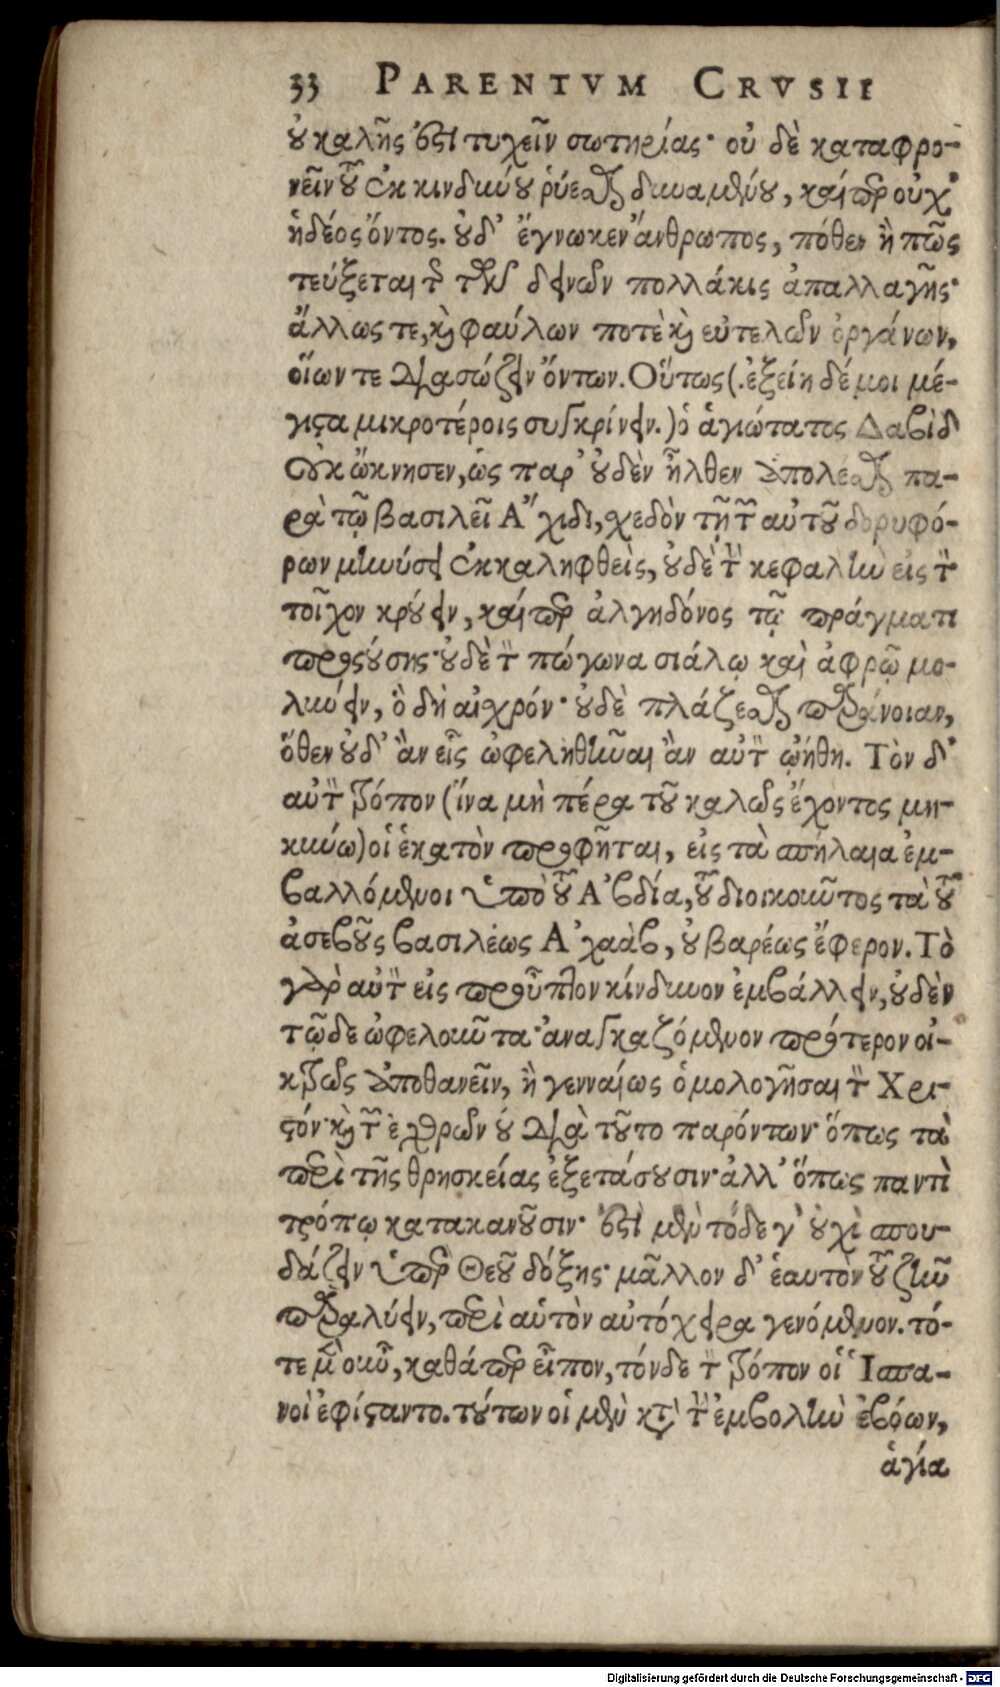 33 PARENTVM CRVSII
οὐ καλῆς ἔστι τυχεῖν σωτηρίας· οὐ δὲ καταφρο-
νεῖν τοῦ ἐκ κινδύνου ῥύεσθαι δυναμένου, καίπερ οὐχ
ἡδέος ὄντος. οὐδ' ἔγνωκεν ἄνθρωπος, πόθεν ἢ πῶς
τεύξεται τῆς τῶν δεινῶν πολλάκις ἀπαλλαγῆς·
ἄλλως τε, καὶ φαύλων ποτὲ καὶ εὐτελῶν ὀργάνων,
οἵων τε διασώζειν ὄντων. Οὕτως (.ἐξείη δέ μοι μέ-
γιστα μικροτέροις συγκρίνειν.) ὁ ἁγιώτατος Δαβὶδ
Οὐκ ὤκνησεν, ὡς παρ' οὐδὲν ἦλθεν ἀπολέσθαι πα-
ρὰ τῷ βασιλεῖ Ἄχιδι, σχεδὸν τῇ τῶν αὐτοῦ δορυφό-
ρων μηνύσει ἐκκαλυφθεὶς, οὐδὲ τὴν κεφαλὴν εἰς τὸν
τοῖχον κρούειν, καίπερ ἀλγηδόνος τῷ πράγματι
προσούσης· οὐδὲ τὸν πώγωνα σιάλῳ καὶ ἀφρῷ μο-
λύνειν, ὃ δὴ αἰσχρόν· οὐδὲ πλάζεσθαι παράνοιαν,
ὅθεν οὐδ' ἂν εἷς ὠφεληθῆναι ἂν αὐτὸν ᾠήθη. Τὸν δ'
αὐτὸν τρόπον (ἵνα μὴ πέρα τοῦ καλῶς ἔχοντος μη-
κύνω) οἱ ἑκατὸν προφῆται, εἰς τὰ σπήλαια ἐμ-
βαλλόμενοι ὑπὸ τοῦ Ἀβδία, τοῦ διοικοῦντος τὰ τοῦ
ἀσεβοῦς βασιλέως Ἀχαὰβ, οὐ βαρέως ἔφερον. Τὸ
γὰρ αὐτὸν εἰς προῦπτον κίνδυνον ἐμβάλλειν, οὐδὲν
τῷδε ὠφελοῦντα· ἀναγκαζόμενον πρότερον οἰ-
κτρῶς ἀποθανεῖν, ἢ γενναίως ὁμολογῆσαι τὸν Χρι-
στόν· καὶ τῶν ἐχθρῶν οὐ διὰ τοῦτο παρόντων· ὅπως τὰ
περὶ τῆς θρησκείας ἐξετάσουσιν· ἀλλ' ὅπως παντὶ
τρόπῳ κατακανοῦσιν· ἔστι μὲν τόδε γ' οὐχὶ σπου-
δάζειν ὑπὲρ Θεοῦ δόξης· μᾶλλον δ' ἑαυτὸν τοῦ ζῆν
παραλύειν, περὶ αὑτὸν αὐτόχειρα γενόμενον. τό-
τε μὲν οὖν, καθάπερ εἶπον, τόνδε τὸν τρόπον οἱ Ἱσπα-
νοὶ ἐφίσταντο. τούτων οἱ μὲν κατὰ τὴν ἐμβολὴν ἐβόων,
ἁγία
Digitalisierung gefördert durch die Deutsche Forschungsgemeinschaft - DFG